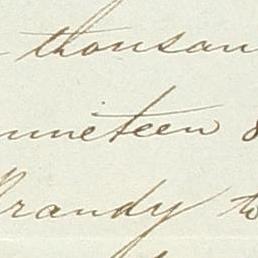 thousan
nineteen &
Brandy to